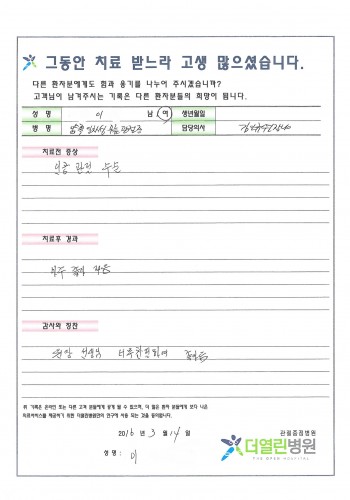 그동안 치료 받느라 고생 많으셨습니다.
다른 환자분에게도 힘과 용기를 나누어 주시겠습니까?
고객님이 남겨주시는 기록은 다른 환자분들의 희망이 됩니다.
성 명 이 남 여 생년월일
병 명 담당의사
치료전 증상
인공 관절 수술
치료후 경과
아주 좋음
감사와 칭찬
원장 선생님 너무 친절하여
위 기록은 온라인 또는 다른 고객 분들에게 공개 될 수 있으며, 더 많은 환자 분들에게 보다 나은
의료서비스를 제공하기 위한 더열린병원만의 연구에 사용 되는 것을 동의합니다.
2016 년 3 월 14 일
성 명 : 이
관절중점병원
더열린병원
THE OPEN HOSPITAL